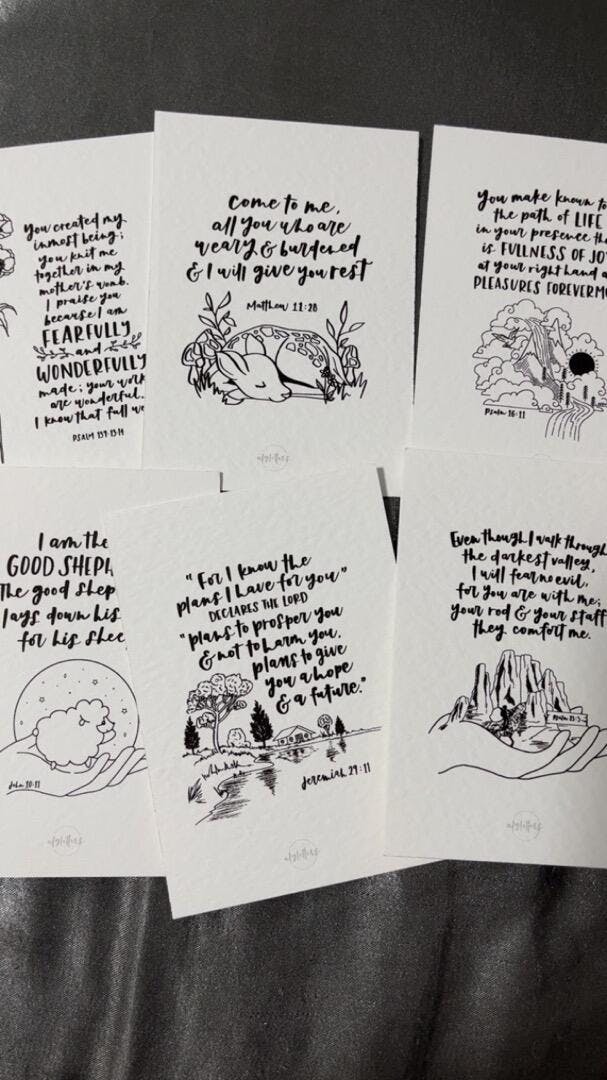 You created my
inmost being;
you knit me
together in my
mother's womb.
I praise you
because I am
FEARFULLY
and
WONDERFULLY
made; your work
are wonderful.
I know that full we
PSALM 139:13-14
Come to me,
all you who are
weary & burdened
& I will give you rest
Matthew 11:28
You make known to
the path of LIFE
in your presence the
is FULLNESS OF JO
at your right hand a
PLEASURES FOREVERMO
Psalm 16:11
I am the
GOOD SHEPH
The good shep
lays down his
for his shee
John 10:11
"For I know the
plans I have for you"
DECLARES THE LORD
"plans to prosper you
& not to harm you.
plans to give
you a hope
& a future."
Jeremiah 29:11
Even though I walk through
the darkest valley,
I will fear no evil,
for you are with me;
your rod & your staff
they comfort me.